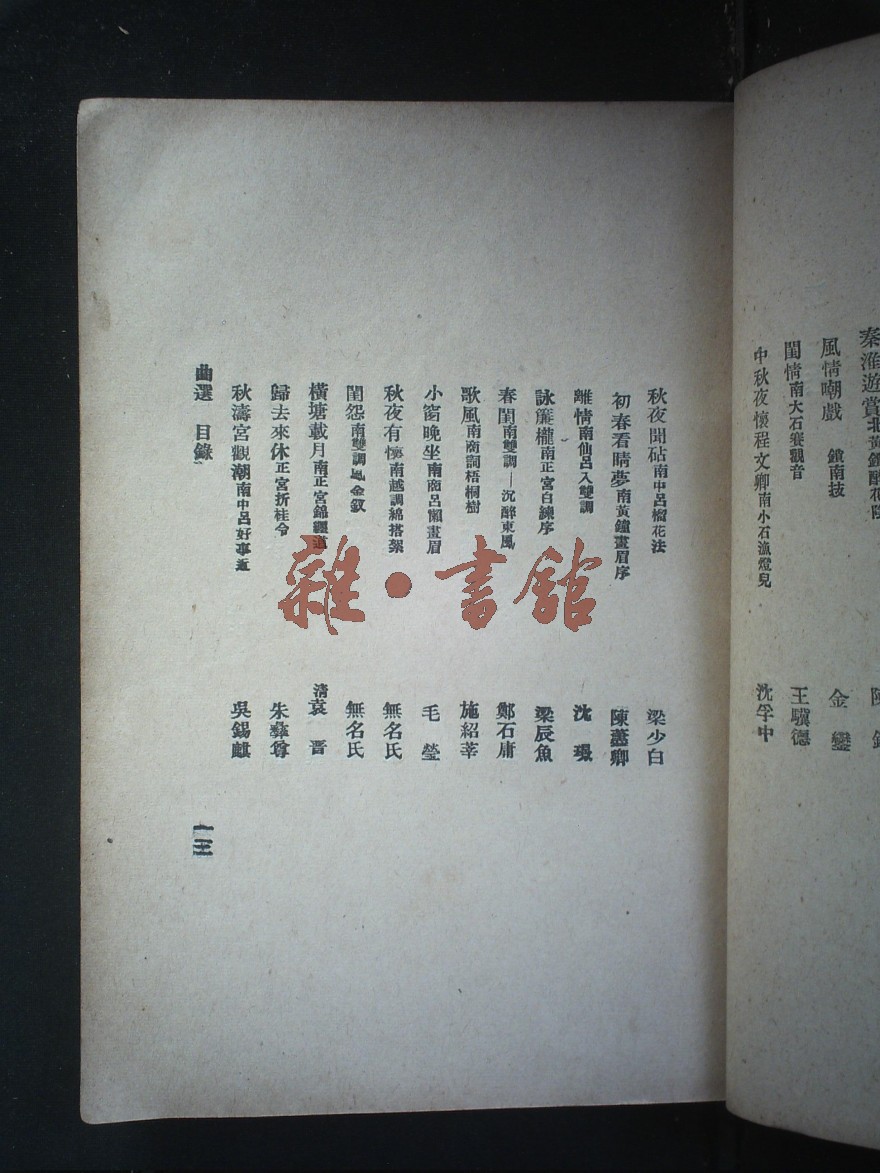 秦淮遊賞北黃鐘醉花陰 陳鐸
風情嘲戲 鎖南技 金鑾
閨情南大石賽觀音 王驥德
中秋夜懷程文卿南小石漁燈兒 沈孚中
秋夜聞砧南中呂榴花法 梁少白
初春看晴夢南黃鐘畫眉序 陳藎卿
離情南仙呂入雙調 沈璟
詠簾櫳南正宮白練序 梁辰魚
春閨南雙調—沉醉東風 鄭石庸
歌風南商調梧桐樹 施紹莘
小窗晚坐南商呂懶畫眉 毛瑩
秋夜有懷南越調綿搭絮 無名氏
閨怨南雙調風金釵 無名氏
橫塘載月南正宮錦纏道 清袁晋
歸去來休正宮折桂令 朱彝尊
秋濤宮觀潮南中呂好事近 吳錫麒
曲選 目錄 一三
雜·書館